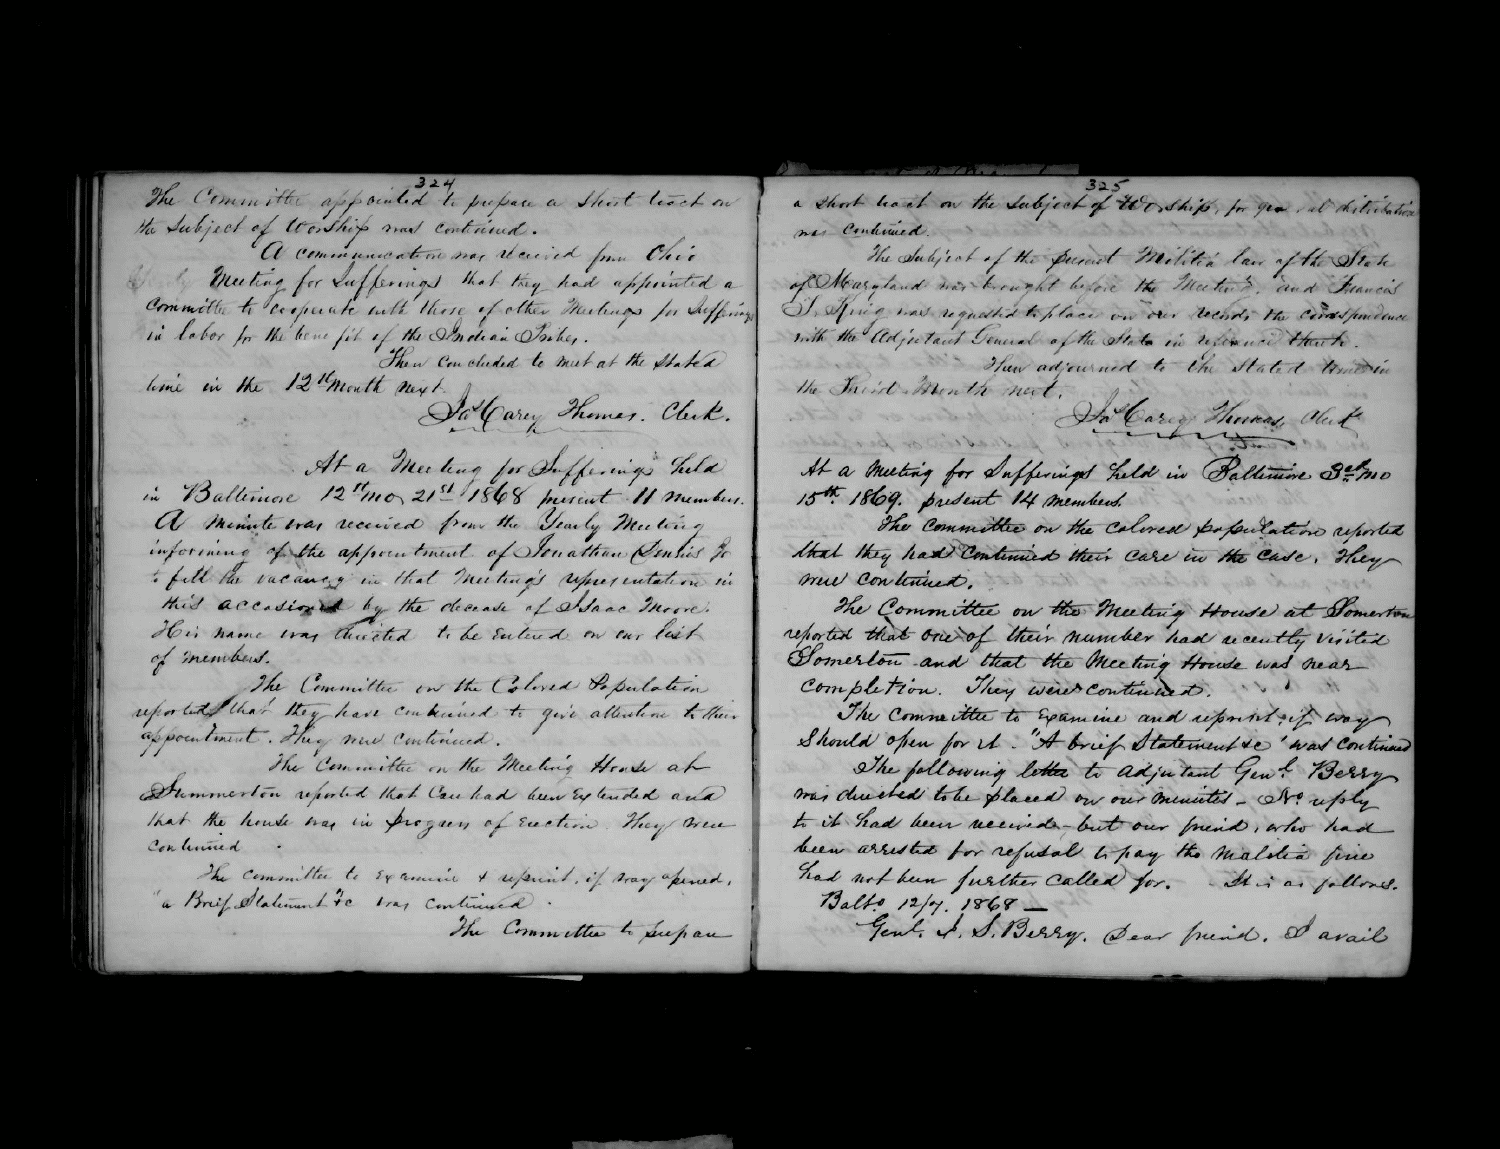 324
The Committee appointed to prepare a short tract on
the subject of Worship was continued.
A communication was received from Ohio
Yearly Meeting for Sufferings that they had appointed a
Committee to cooperate with those of other Meetings for Sufferings
in labor for the benefit of the Indian Tribes.
Then concluded to meet at the stated
time in the 12th Month next
Jas Carey Thomas. Clerk.
At a Meeting for Sufferings held
in Baltimore 12th mo 21st 1868 present 11 members.
A minute was received from the Yearly Meeting
informing of the appointment of Jonathan Jr
to fill the vacancy in that Meeting's representation in
this occasioned by the decease of Isaac Moore.
His name was directed to be entered on our list
of members.
The Committee on the Colored Population
reported that they have continued to give attention to their
appointment. They were continued.
The Committee on the Meeting House at
Summerton reported that Care had been Extended and
that the house was in progress of Erection. They were
continued.
The committee to Examine & reprint, if way opened,
"a Brief Statement &c was continued.
The Committee to prepare
325
a short tract on the subject of Worship, for general distribution
was continued.
The Subject of the present Militia law of the State
of Maryland was brought before the Meeting, and Francis
T. King was requested to place on our records the correspondence
with the Adjutant General of the State in reference thereto.
Then adjourned to the Stated time in
the Third Month next.
Jas Carey Thomas, Clerk
At a Meeting for Sufferings held in Baltimore 3rd mo
15th 1869. present 14 members.
The Committee on the Colored population reported
that they had continued their care in the case. They
were continued.
The Committee on the Meeting House at Somerton
reported that one of their number had recently visited
Somerton and that the Meeting House was near
completion. They were continued.
The committee to Examine and reprint, if way
should open for it. "A brief Statement &c" was continued
The following letter to Adjutant Genl. Berry
was directed to be placed on our minutes - No reply
to it had been received - but our friend, who had
been arrested for refusal to pay the malitia fine
had not been further called for. It is as follows.
Balto 12/7. 1868 —
Genl. J. S. Berry. Dear friend. I avail